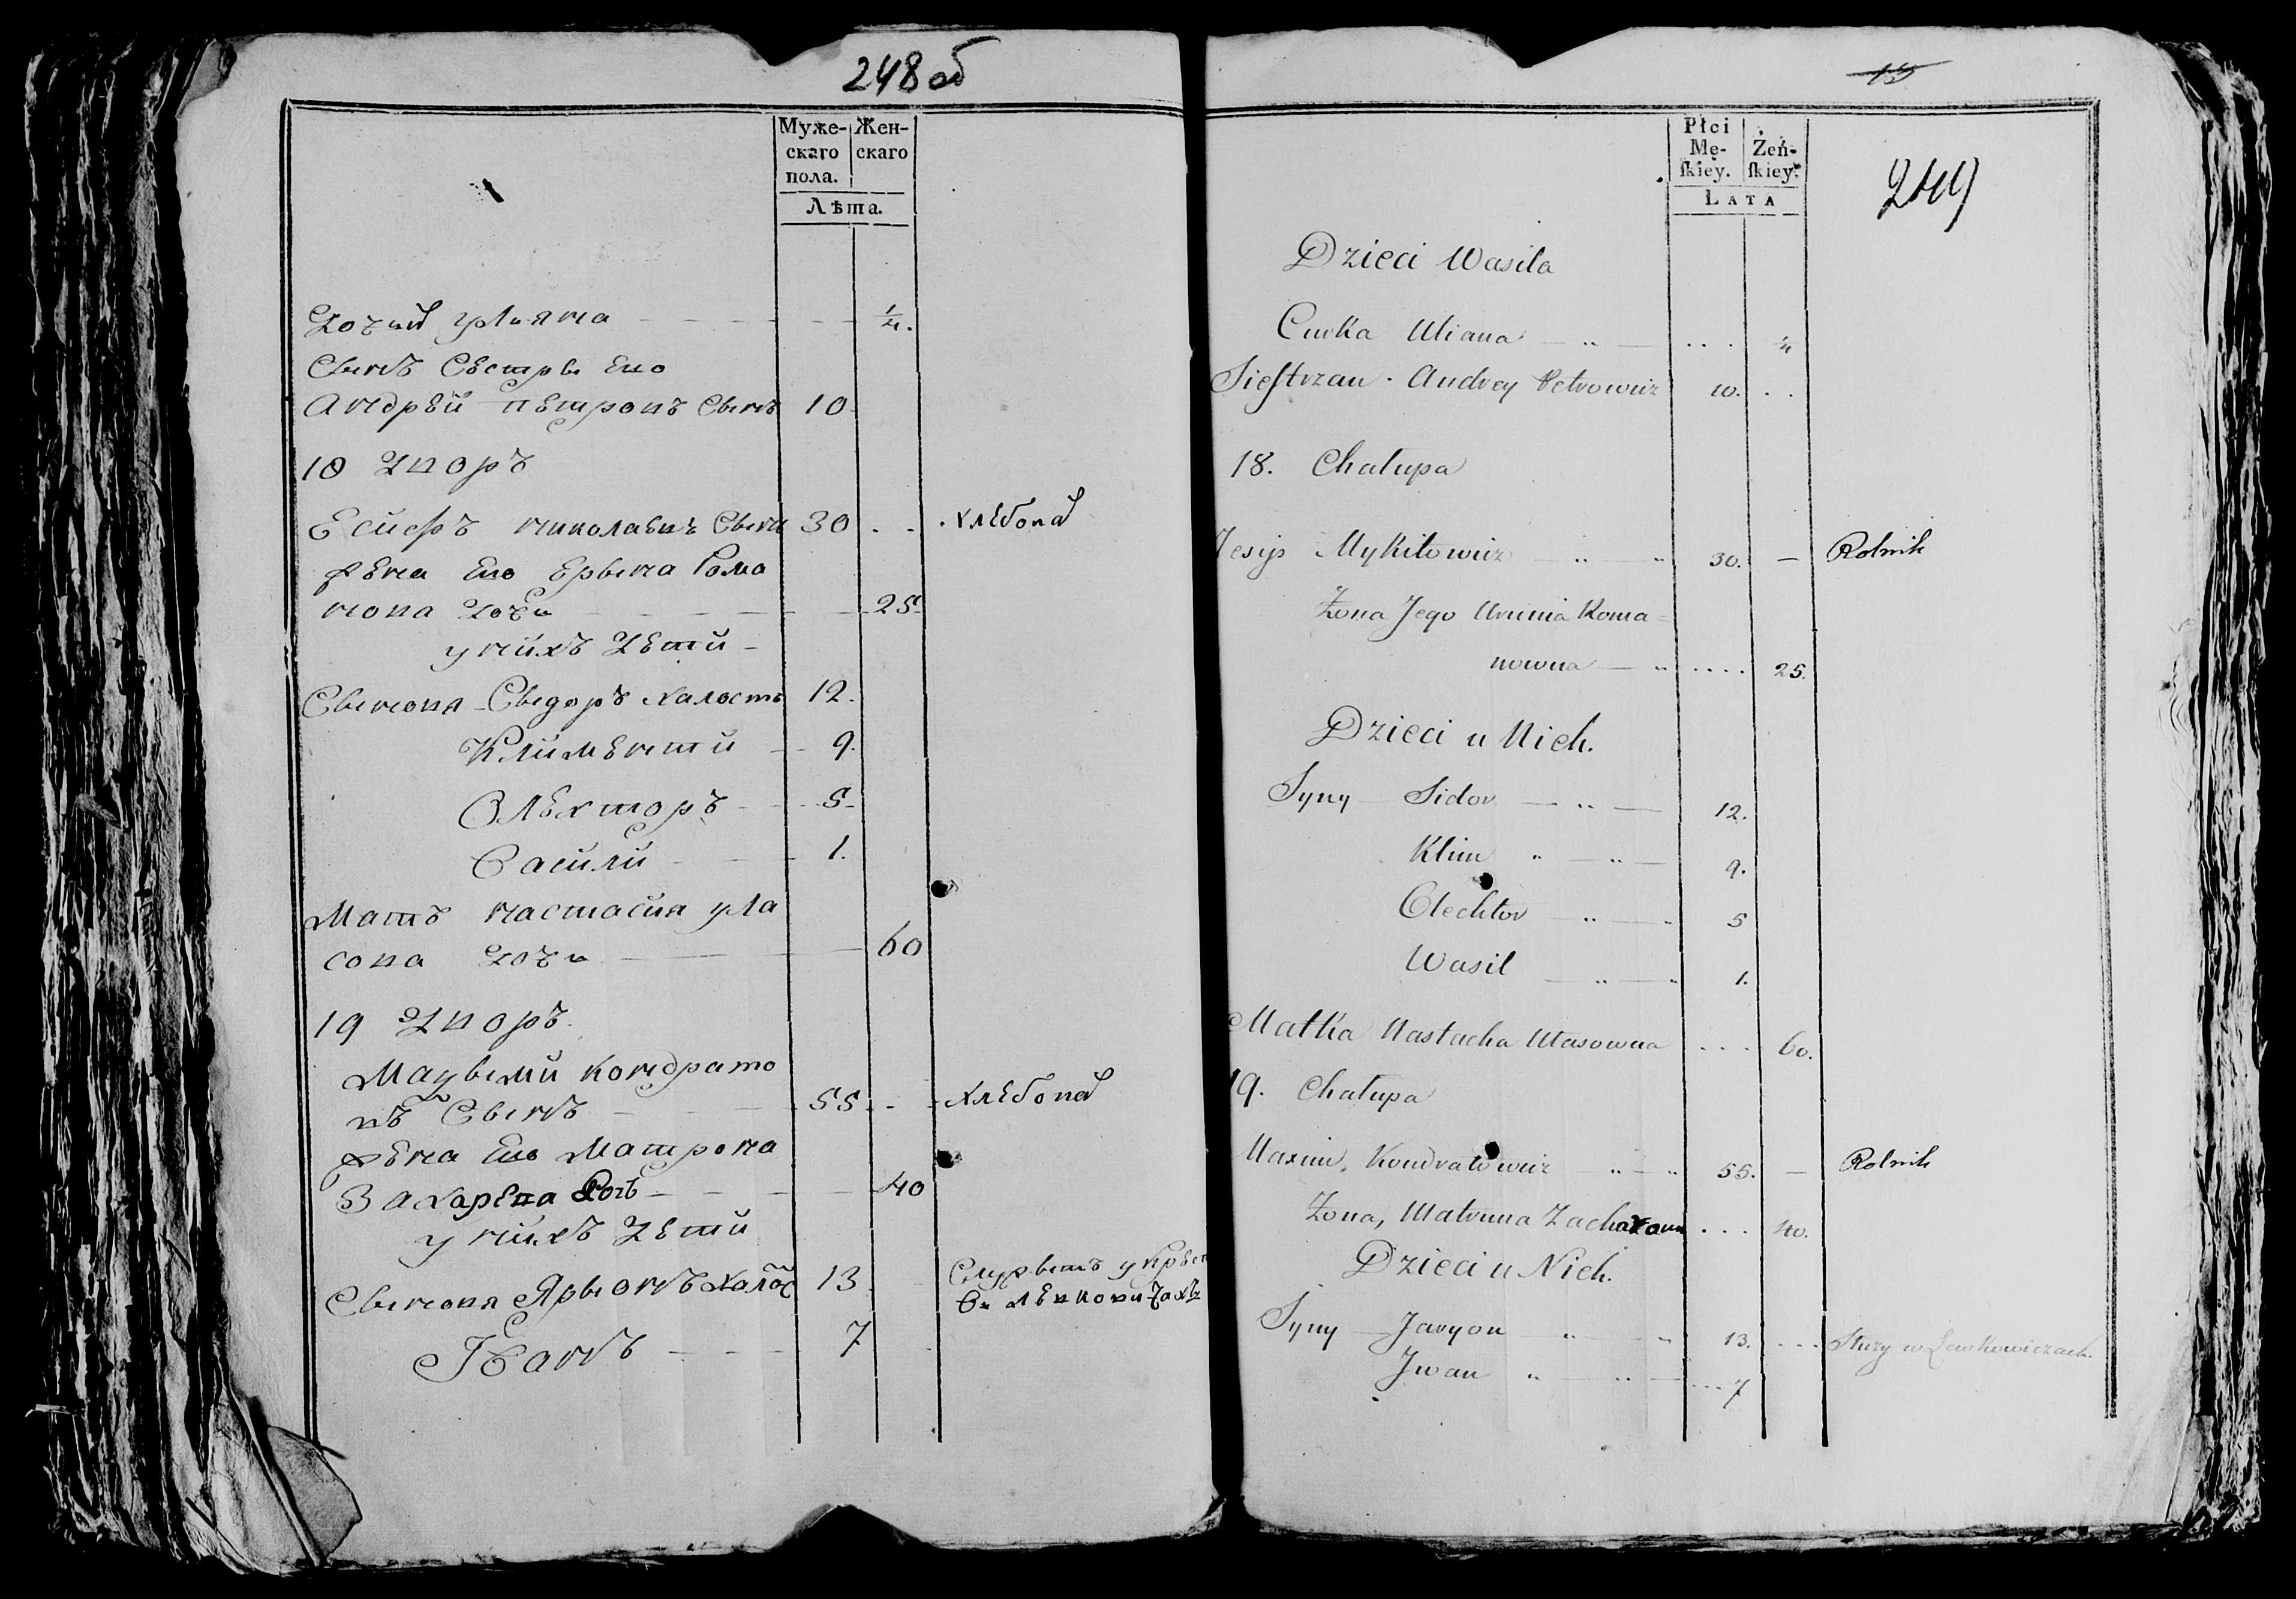 248 об
Муже-
скаго
пола.
Жен-
скаго
Лѣта.
Дочка Уляна 1/4.
Сынъ Сестры Ево
Андрей Петровъ Сынъ 10
18 Дворъ
Есифъ Николаевъ Сынъ 30 . . Хлебопа
Жена Ево Ерына Рома
нова Дочь 25
У нихъ Дети
Сынова Сыдоръ Халосты 12.
Климентий 9.
Олехторъ 5
Василй 1.
Мать Настасия Ула
сова Дочь 60
19 Дворъ
Мацьвий Кондрато
въ Сынъ 55 Хлебопа
Жена Ево Матрона
Захарева Дочь 40
У нихъ Дети
Сынова Ярыонъ Халос 13
Иванъ 7
15
249
Płci
Mę-
skiey.
Żeń-
skiey.
LATA
Dzieci Wasila
Curka Uliana . . . ¼
Siestrzan. Andrey Petrowicz 10. . .
18. Chałupa
Jesip Mykitowicz 30. — Rolnik
Żona Jego Urunia Roma=
nowna . . . . 25.
Dzieci u Nich.
Syny Sidor 12.
Klim 9.
Olechtor 5
Wasil 1.
Matka Nastacha Ułasowna . . . 60.
19. Chałupa
Maxim, Kondratowicz 55. — Rolnik
Żona, Matruna Zacharowna . . . 40.
Dzieci u Nich.
Syny Jaryon 13. . . . Służy w Lewkowiczach.
Jwan 7